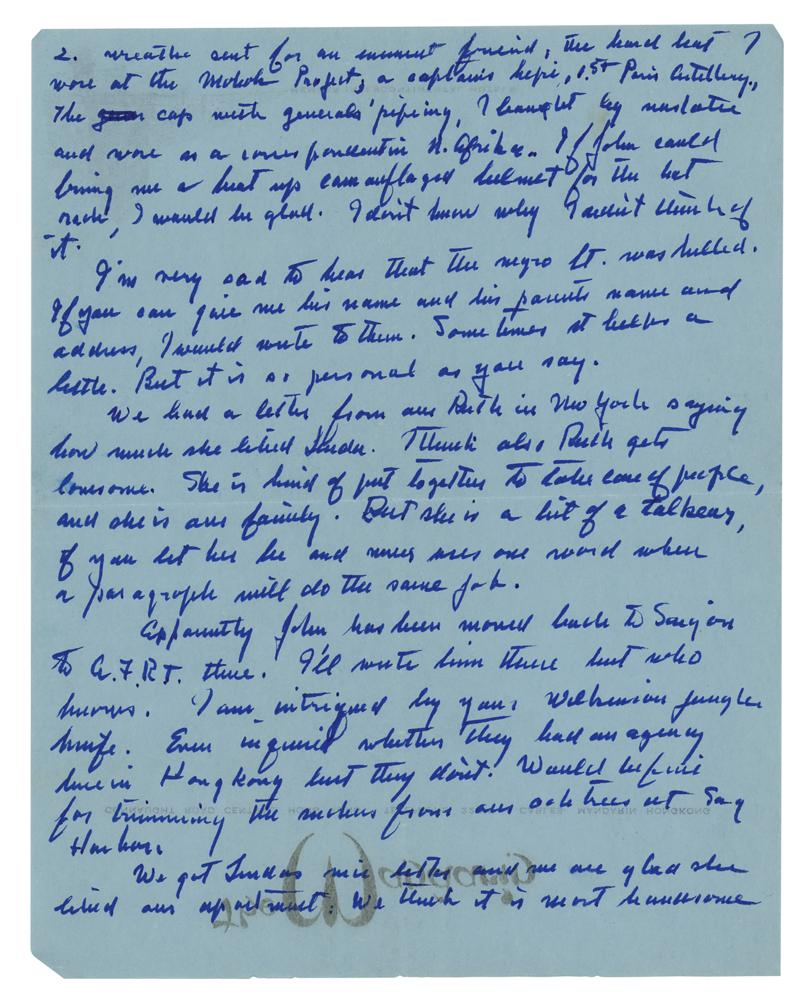 2. wreathe sent for an eminent friend, the hard hat I
wore at the Mohole Project, a captains kepi, 1st Paris Artillery,
The caps with generals' piping, I bought by mistake
and wore as a correspondent in N. Afrika. If John could
bring me a beat up camouflaged helmet for the hat
rack, I would be glad. I don't know why I didn't think of
it.
I'm very sad to hear that the negro Lt. was killed.
If you can give me his name and his parents name and
address, I would write to them. Sometimes it helps a
little. But it is so personal as you say.
We had a letter from our Ruth in New York saying
how much she liked Linda. I think also Ruth gets
lonesome. She is kind of put together to take care of people,
and she is our family. But she is a bit of a talkear,
if you let her be and never uses one word when
a paragraph will do the same job.
Apparently John has been moved back to Saigon
to A.F.R.T. there. I'll write him there but who
knows. I am intrigued by your Wilkinson jungle
knife. Even inquired whether they had an agency
here in Hongkong but they don't. Would be fine
for trimming the suckers from our oak trees at Sag
Harbor.
We got Lindas nice letter and we are glad she
liked our apartment. We think it is most handsome
CONNAUGHT ROAD CENTRAL HONG KONG CABLES MANDARIN HONGKONG